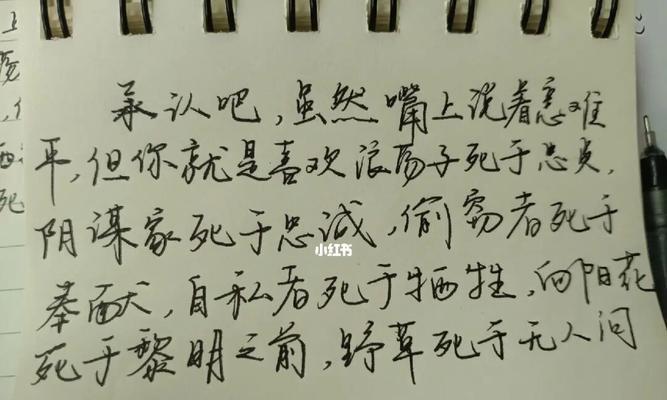 承认吧，虽然嘴上说着意难
平，但你就是喜欢浪荡子死于忠贞，
阴谋家死于忠诚，偷窃者死于
奉献，自私者死于牺牲，向阳花
死于黎明之前，野草死于无人问
小红书